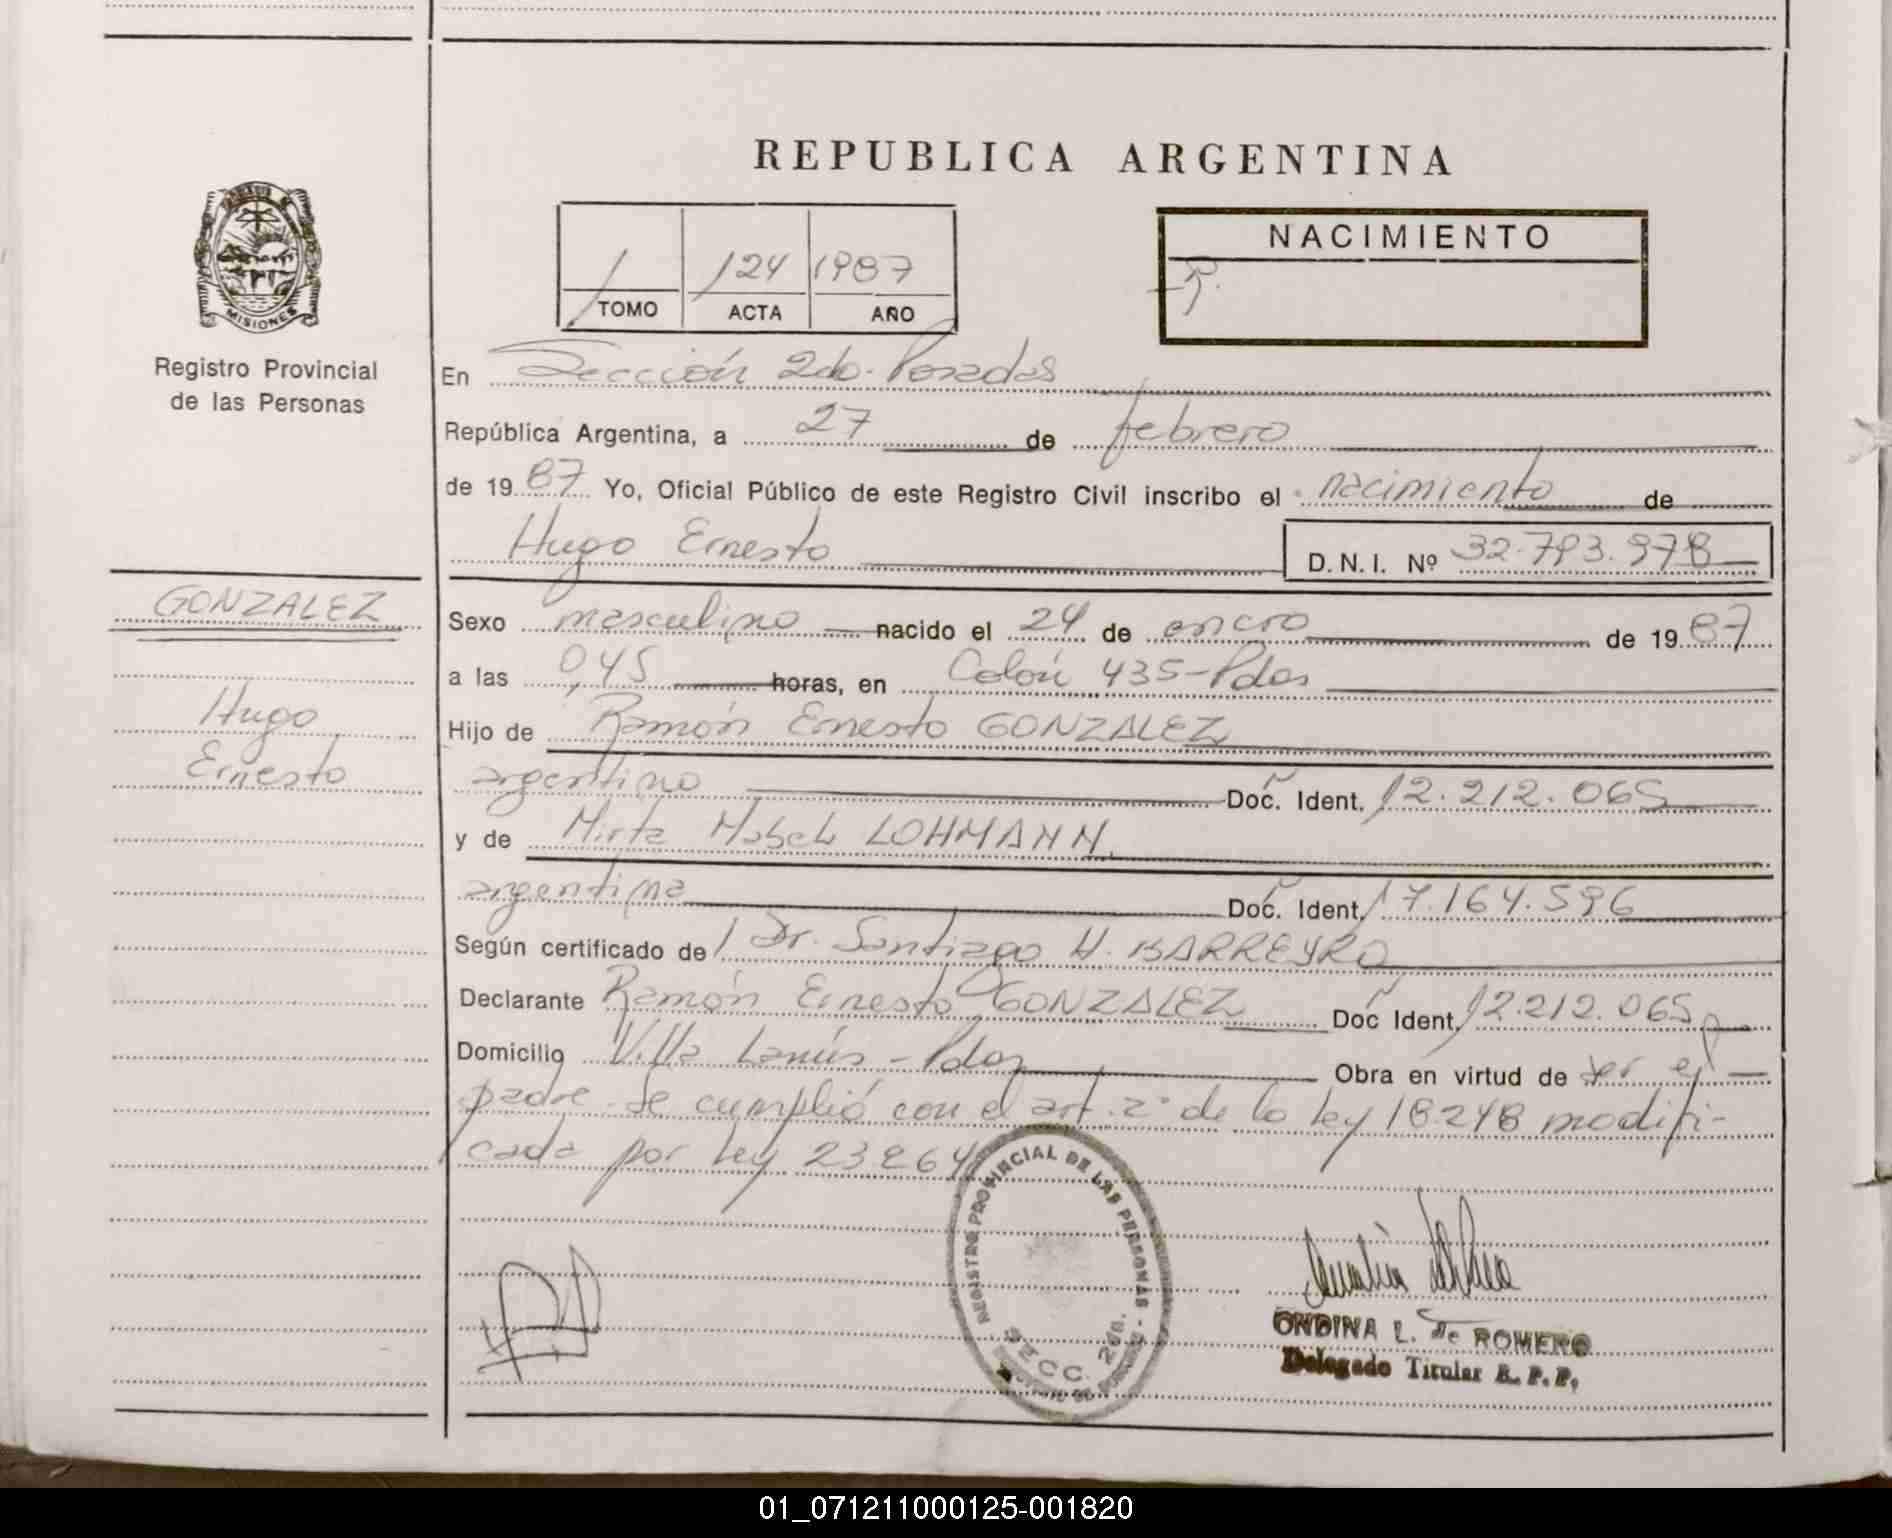 REPUBLICA ARGENTINA
MISIONES
Registro Provincial
de las Personas
1 124 1987
TOMO ACTA AÑO
NACIMIENTO
En Sección 2da. Posadas
República Argentina, a 27 de febrero
de 1987 Yo, Oficial Público de este Registro Civil inscribo el nacimiento de
Hugo Ernesto D.N.I. Nº 32.793.978
GONZALEZ
Hugo
Ernesto
Sexo masculino nacido el 24 de enero de 1987
a las 0,45 horas, en Colón 435-Pdas
Hijo de Ramón Ernesto GONZALEZ
argentino Doc. Ident. 12.212.065
y de Mirta Mabel LOHMANN
argentina Doc. Ident. 17.164.596
Según certificado de Dr. Santiago H. BARREYRO
Declarante Ramón Ernesto GONZALEZ Doc Ident. 12.212.065
Domicilio Villa Lanús - Pdas Obra en virtud de ser el
padre. Se cumplió con el art. 2º de la ley 18.248 modifi-
cada por ley 23264
REGISTRO PROVINCIAL DE LAS PERSONAS
SECC. 2da.
ONDINA L. de ROMERO
Delegado Titular R. P. P.
01_071211000125-001820